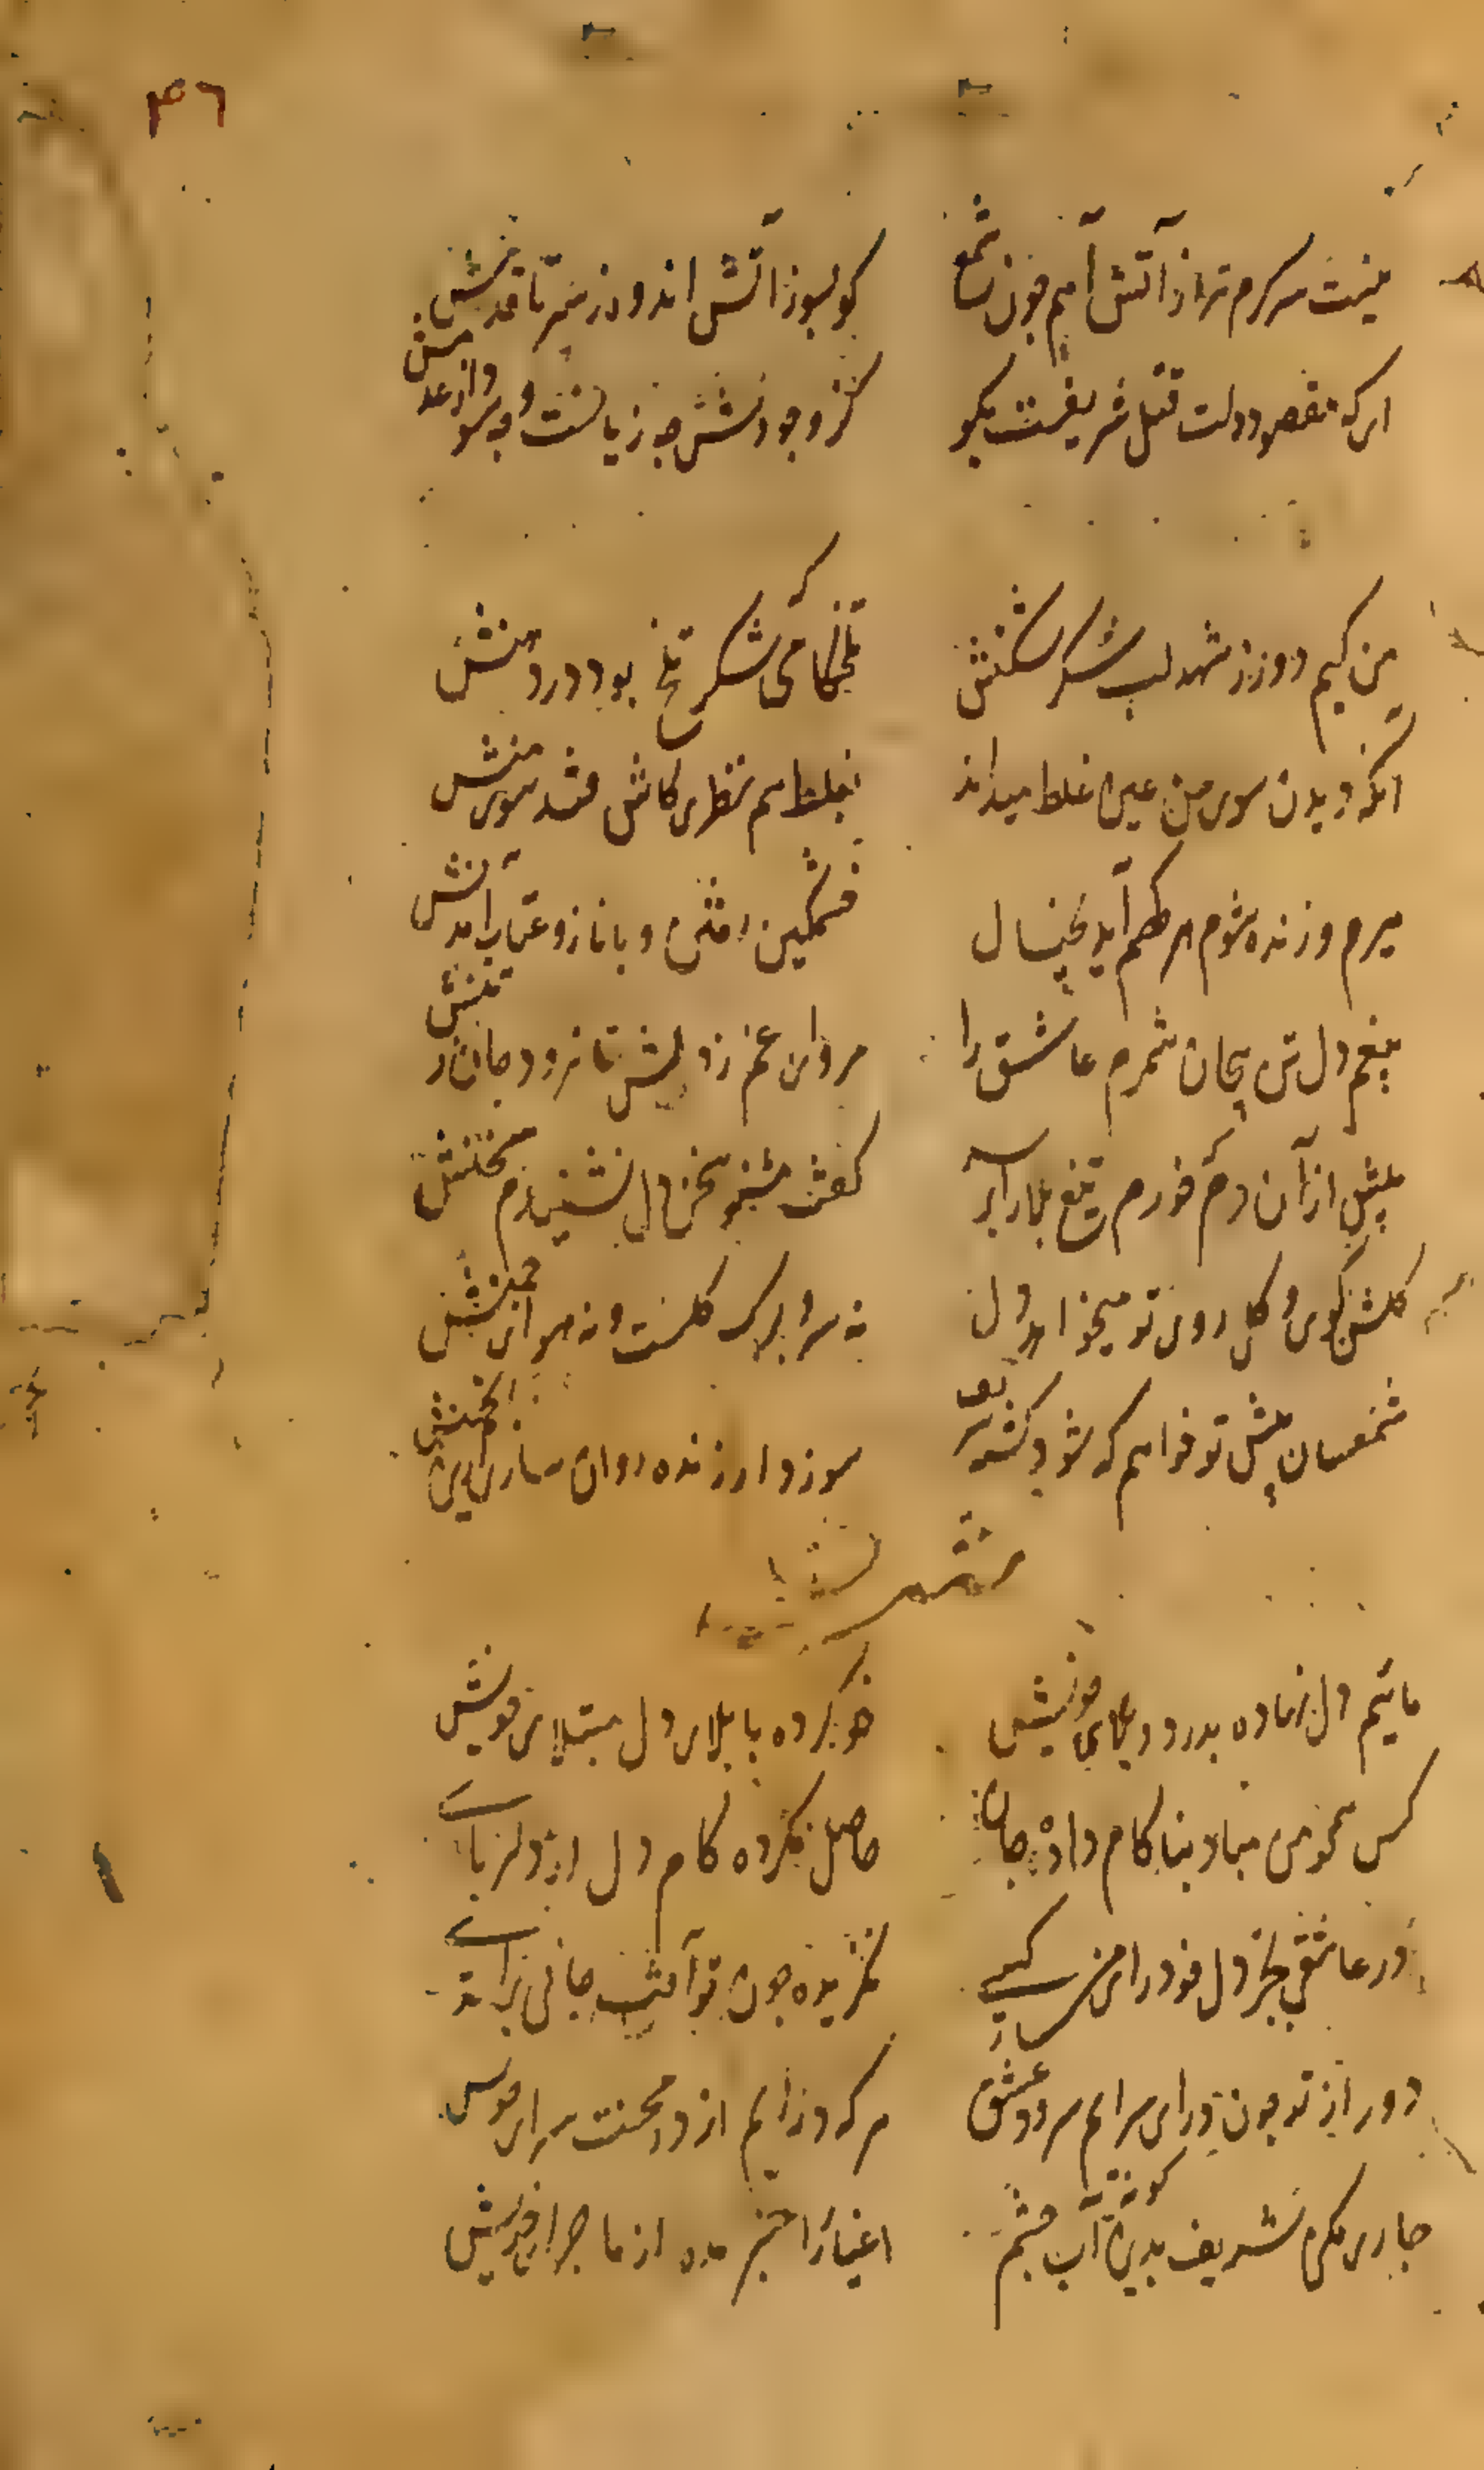 ۴۶
نیست سر گرم تر از آتش آهم چون شمع
کو بسوز آتش اندوه ز سر تا قدمش
ای که مقصود دلت قتل شریفست بگو
کز وجودش چه زیانست و چه سود از عدمش
من کیم دور ز شهد لب شکر شکنش
تلخکامی که شکر تلخ بود در دهنش
آنکه دیدن سوی من عین غلط میداند
بغلط هم نظری کاش فتد سوی منش
میرم و زنده شوم هر گهم آید بخیال
خشمگین رفتن و با ناز و عتاب آمدنش
بیغم دل تن بیجان شمرم عاشق را
مرو ای غم ز دلش تا نرود جان ز تنش
پیش از آن دم که خورم تیغ بلا را بر سر
گفتمش بشنو سخن دل نشنیدم سخنش
گلشن کوی و گل روی تو میخواهد دل
نه سر و برگ گلست و نه هوای چمنش
شمعسان پیش تو خواهم که شود کشته شریف
سوز دل دار زنده روان ساز این انجمنش
مائیم دل نهاده بدرد و بلای خویش
خو کرده با بلای دل مبتلای خویش
کس همچو من مباد بناکام داده جان
حاصل نکرده کام دل از دلربای
در عاشقی بجز دل خود رای من کسی
نگزیده چون تو آفت جانی برای
دور از تو چون درای سرایم سرود عشق
هر که در آیم از در محنت سرای خویش
جاری مکن شریف بدین گونه آب چشم
اغیار را خبر مده از ماجرای خویش